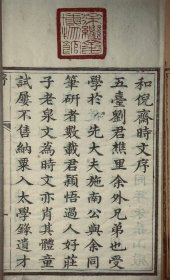 和倪齋時文序
五臺劉君樵里余外兄弟也受
學於 先大夫施南公與余同
筆研者數載君穎悟過人好莊
子老泉文為時文亦肖其體童
試屢不售納粟入太學錄遺才